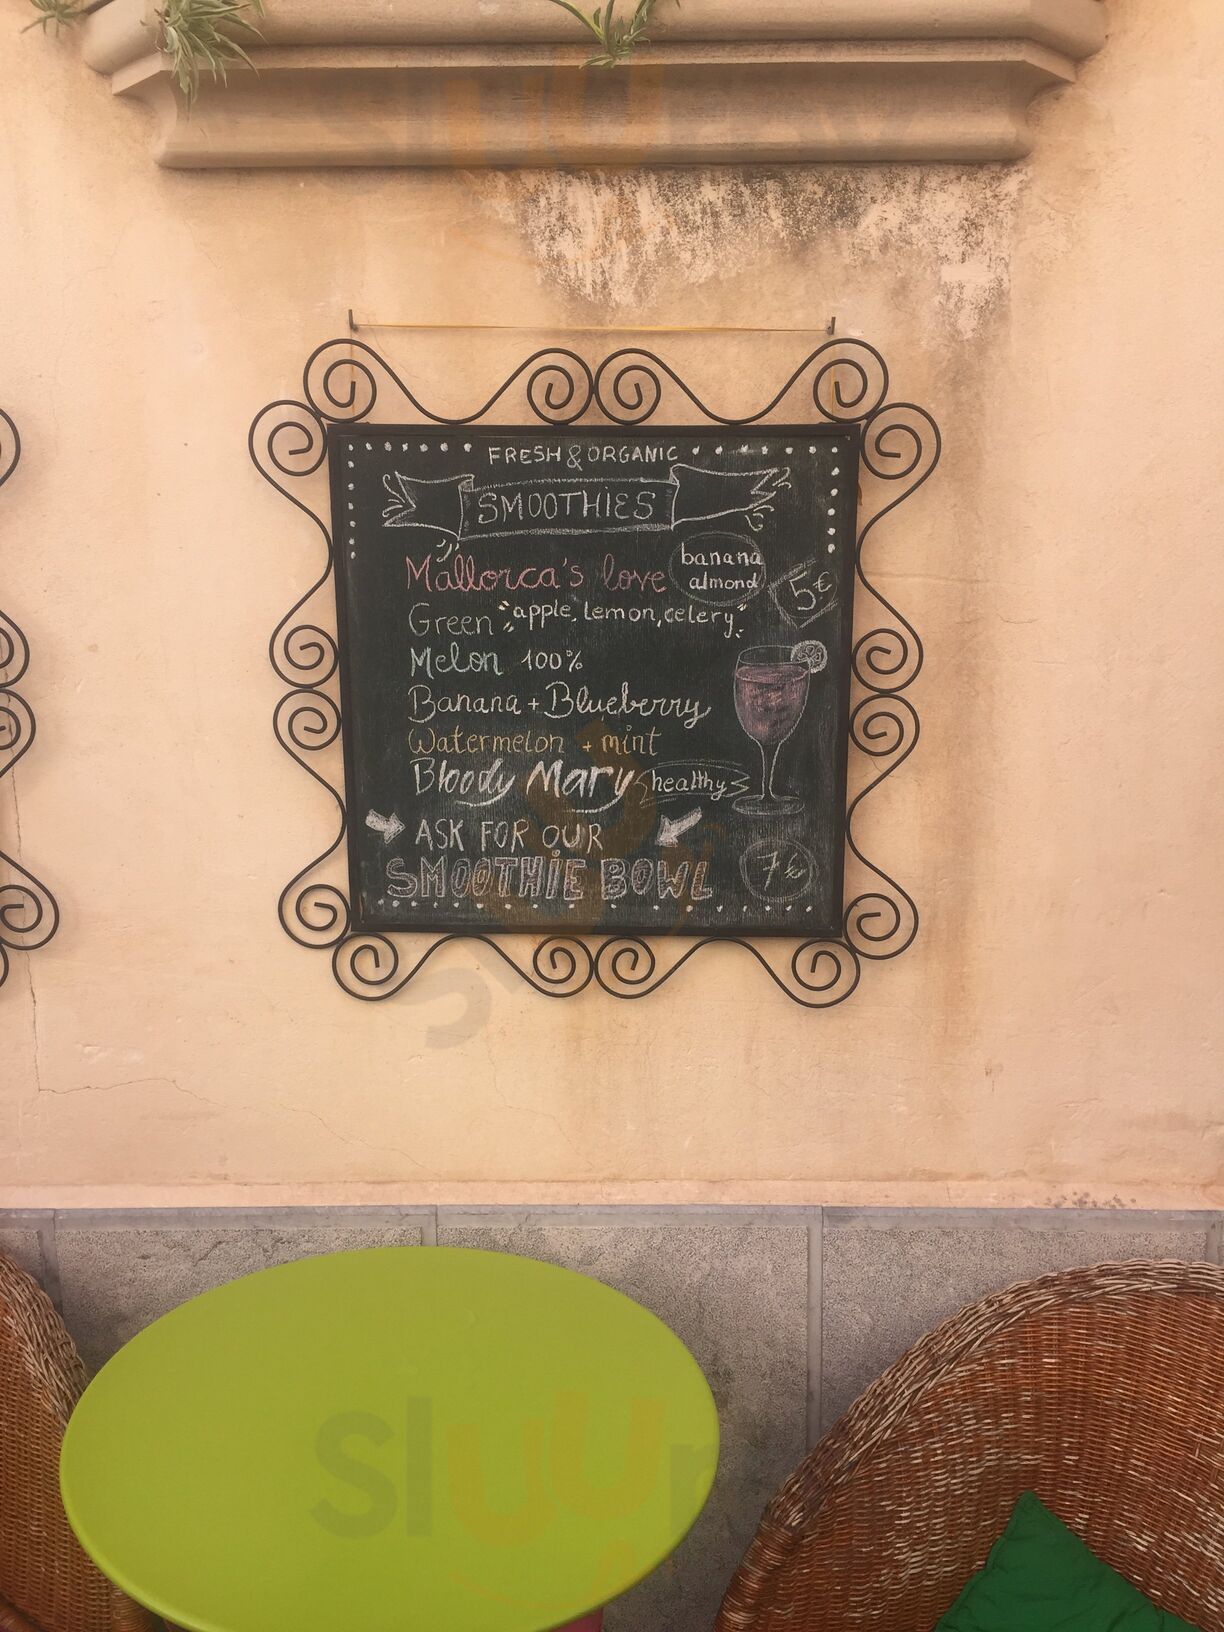 FRESH & ORGANIC
SMOOTHIES
Mallorca's love banana almond
5€
Green "apple, lemon, celery"
Melon 100%
Banana + Blueberry
Watermelon + mint
Bloody Mary healthy
ASK FOR OUR
SMOOTHIE BOWL 7€